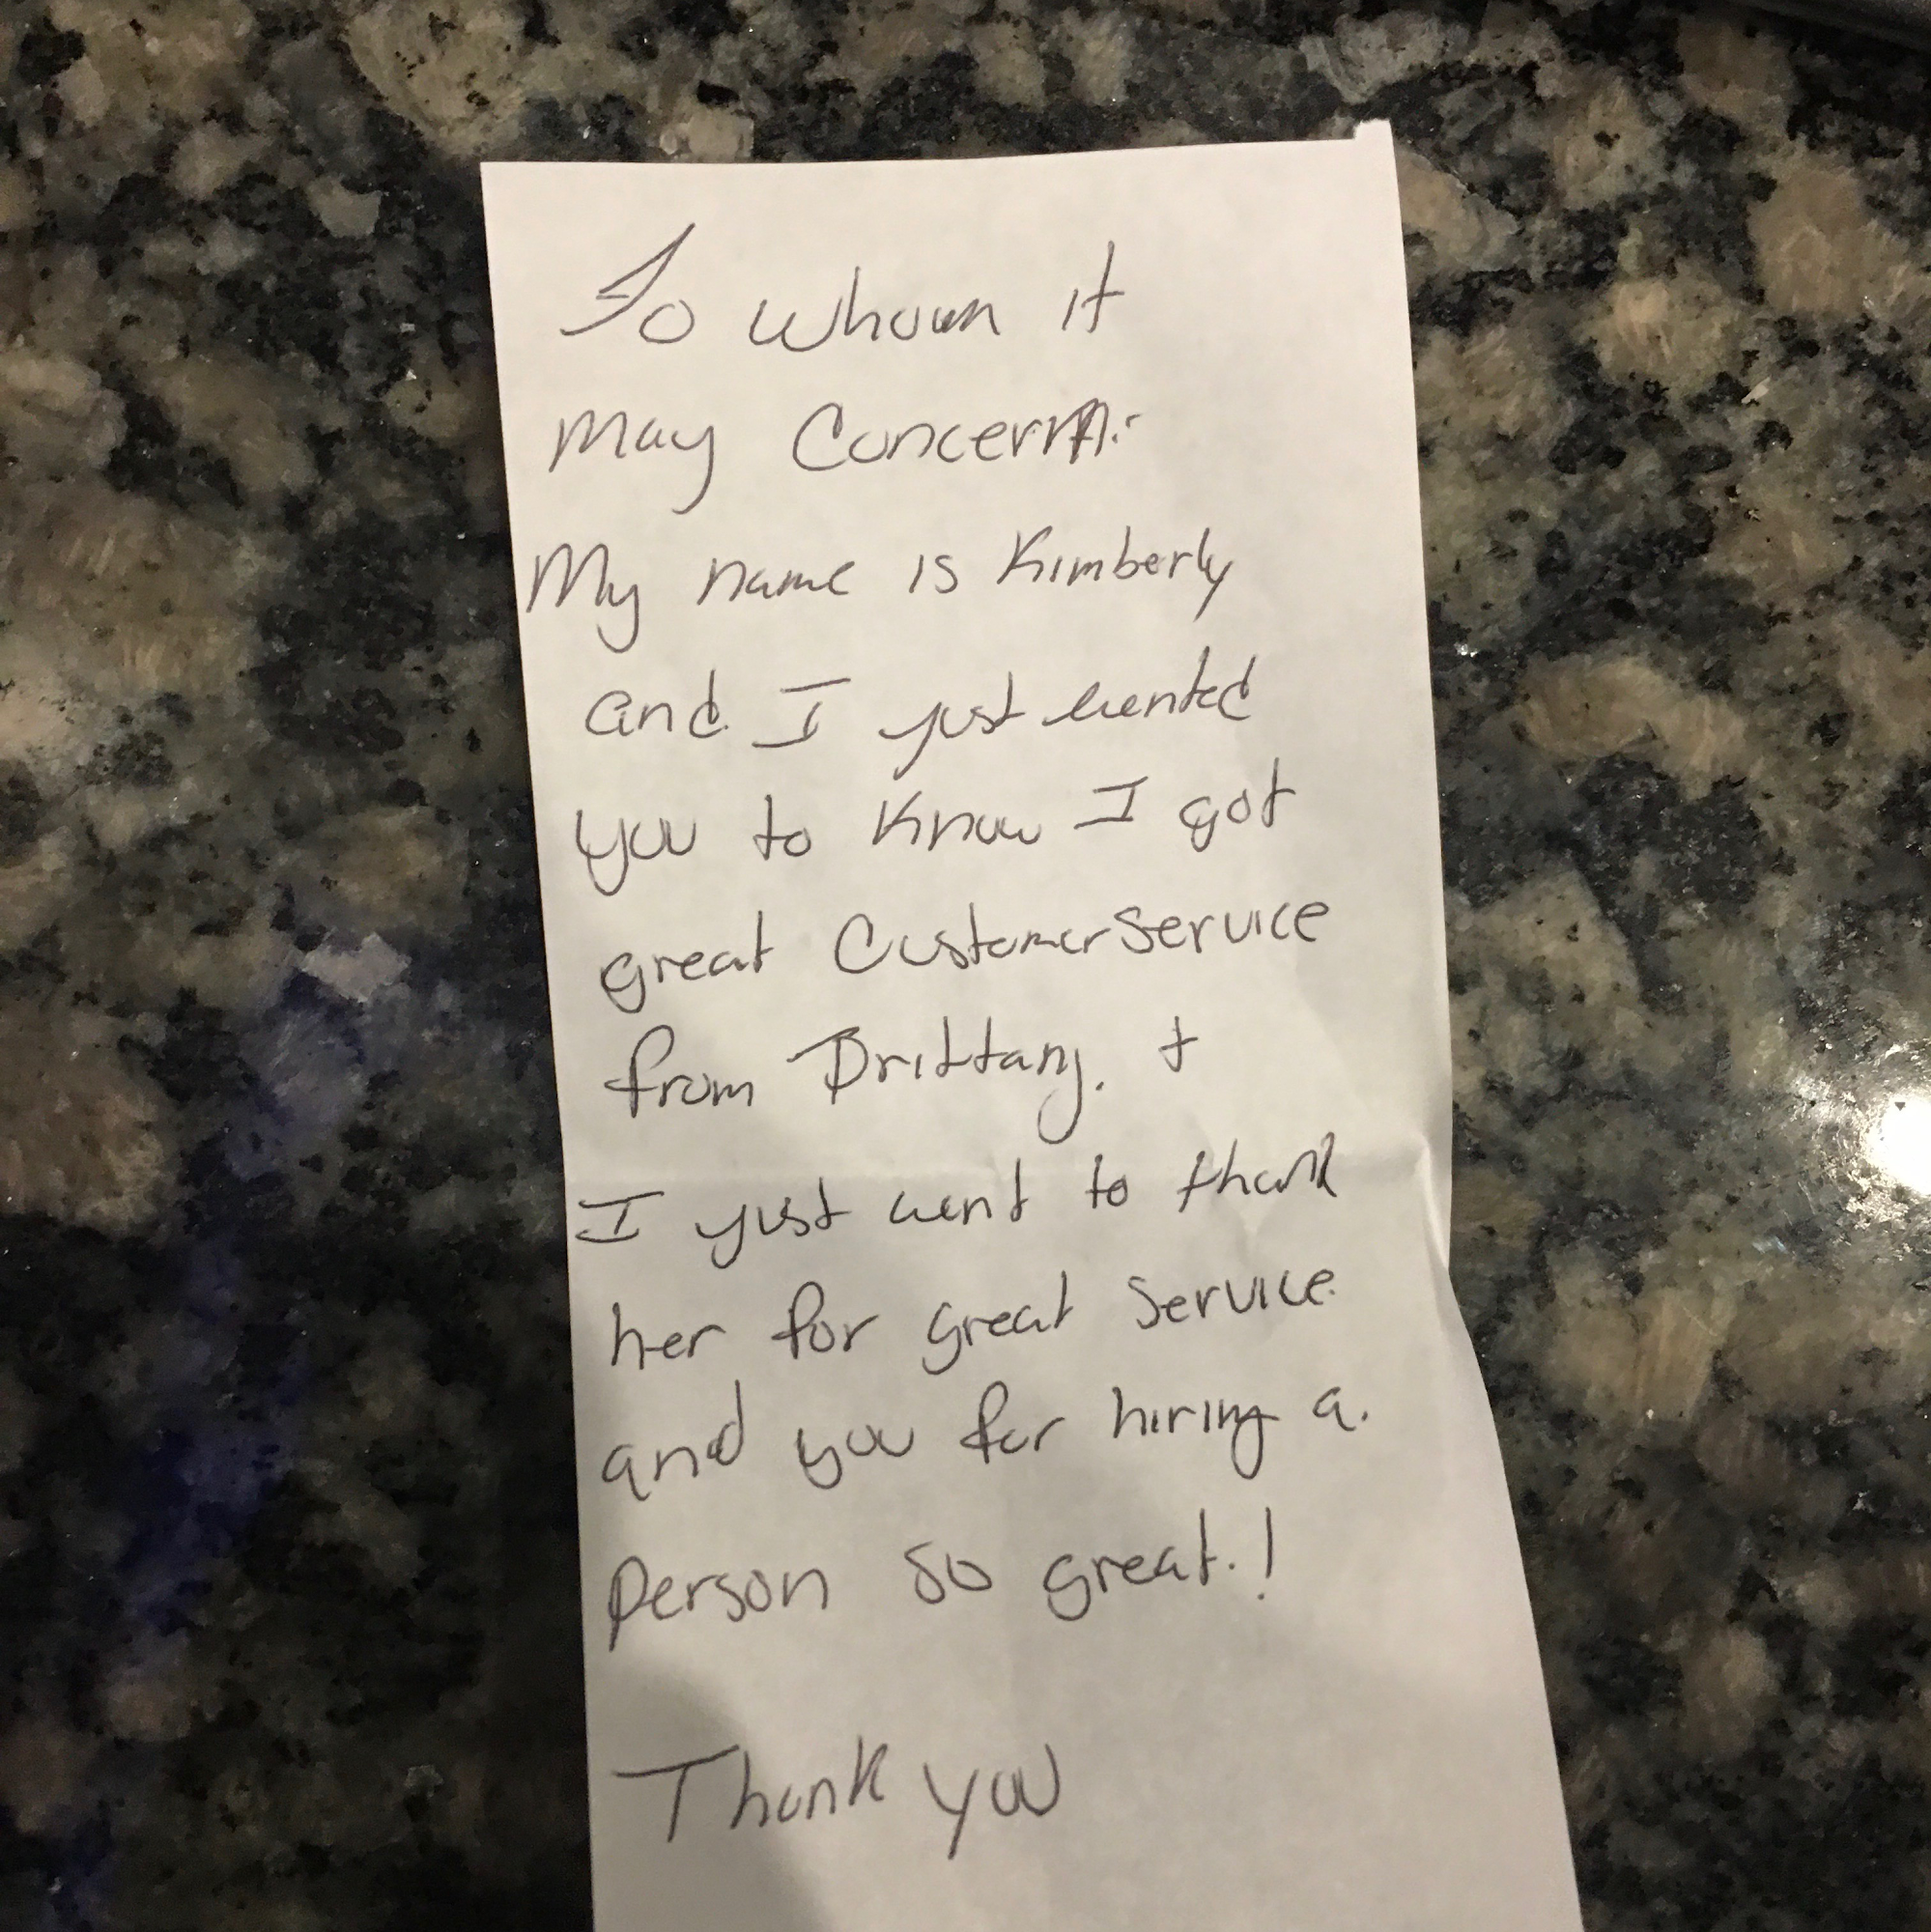 To whom it
may Concern:
My name is Kimberly
and I just wanted
you to know I got
great Customer Service
from Brittany. +
I just want to thank
her for great service.
and you for hiring a.
person so great.!
Thank you